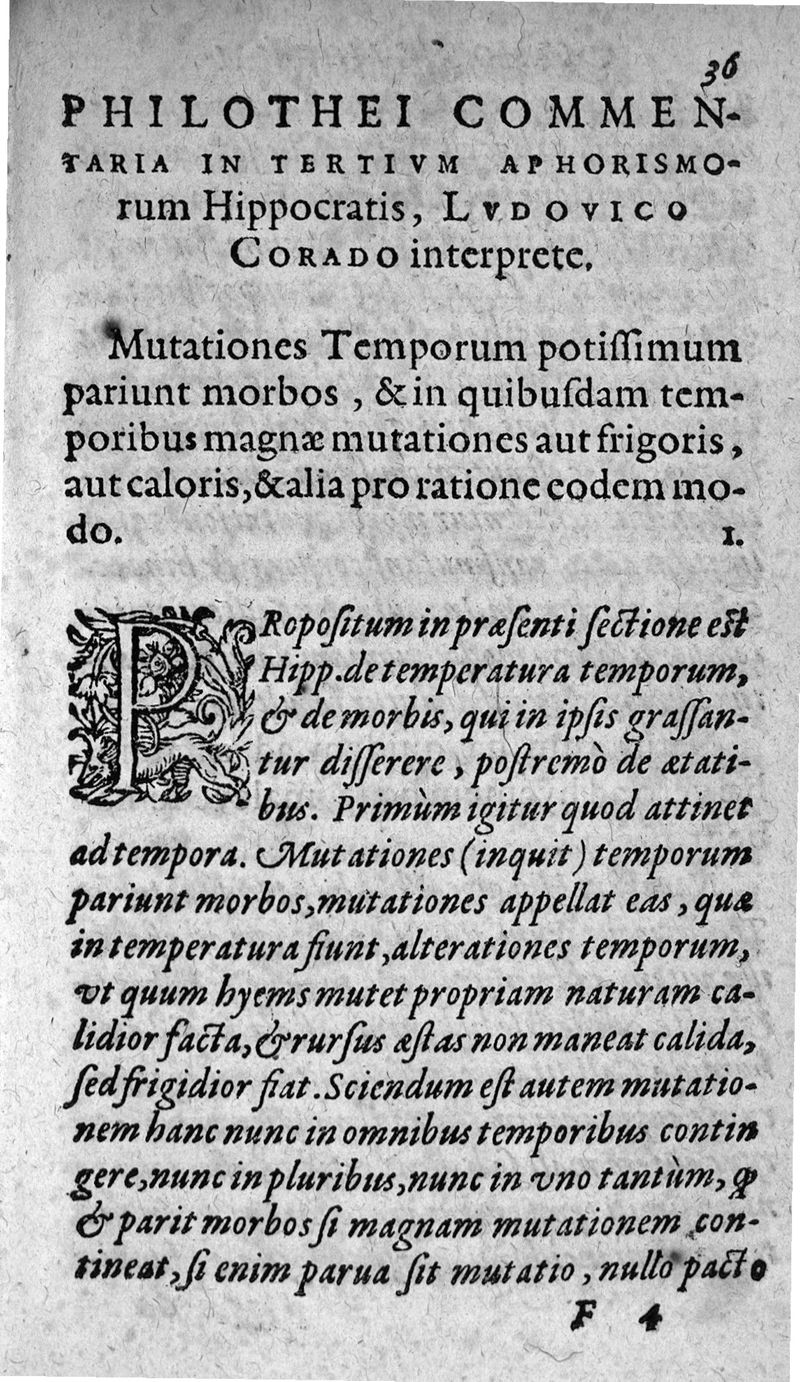 36
PHILOTHEI COMMEN-
TARIA IN TERTIVM APHORISMO-
rum Hippocratis, LVDOVICO
CORADO interprete.
Mutationes Temporum potiſſimum
pariunt morbos , & in quibuſdam tem-
poribus magnæ mutationes aut frigoris ,
aut caloris, & alia pro ratione eodem mo-
do. 1.
PRopoſitum in præſenti ſectione eſt
Hipp. de temperatura temporum,
& de morbis, qui in ipſis graſſan-
tur diſſerere , poſtremò de ætati-
bus. Primùm igitur quod attinet
ad tempora. Mutationes (inquit) temporum
pariunt morbos, mutationes appellat eas , quæ
in temperatura fiunt, alterationes temporum,
vt quum hyems mutet propriam naturam ca-
lidior facta, & rurſus æſtas non maneat calida,
ſed frigidior fiat. Sciendum eſt autem mutatio-
nem hanc nunc in omnibus temporibus contin
gere, nunc in pluribus, nunc in vno tantùm, ꝙ
& parit morbos ſi magnam mutationem con-
tineat, ſi enim parua ſit mutatio , nullo pacto
F 4